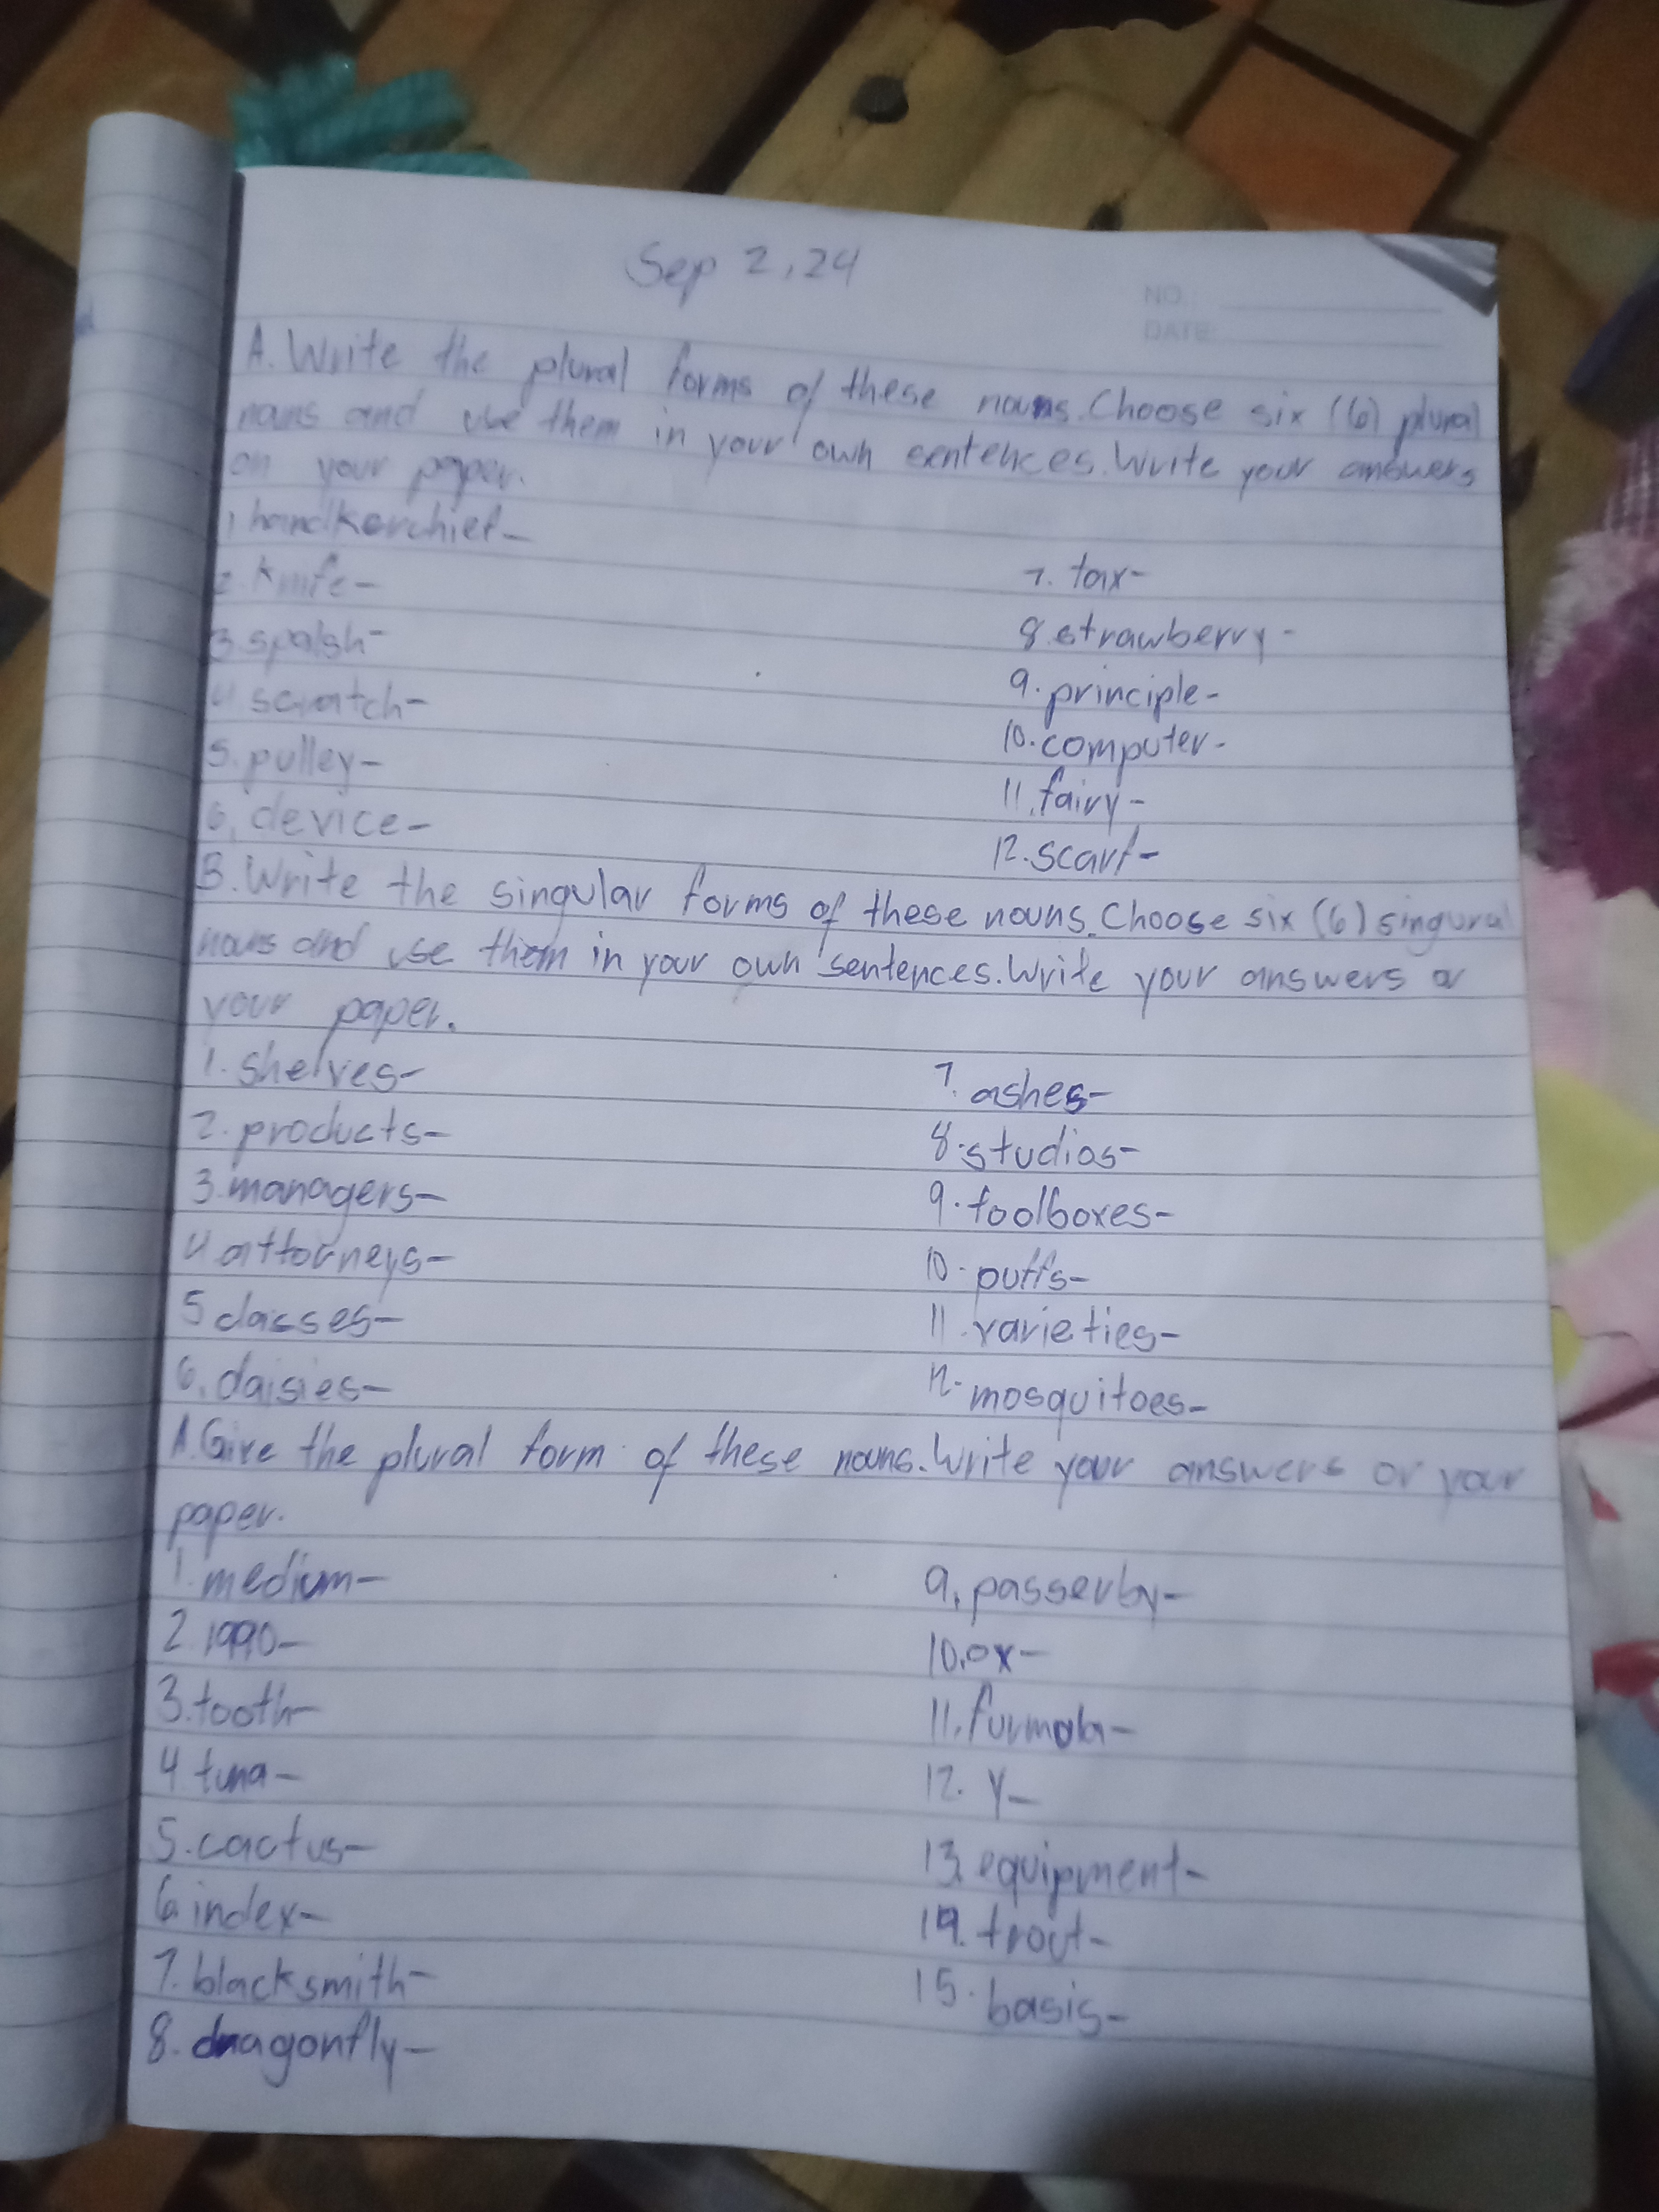 Sep 2, 24
NO.:
DATE:
A. Write the plural forms of these nouns. Choose six (6) plural
nouns and use them in your own sentences. Write your answers
on your paper.
1 handkerchief-
2. knife-
3 spalsh-
4 scratch-
5. pulley-
6. device-
7. tax-
8. strawberry-
9. principle-
10. computer-
11. fairy-
12. scarf-
B. Write the singular forms of these nouns. Choose six (6) singural
nouns and use them in your own sentences. Write your answers o
your paper.
1. shelves-
2. products-
3. managers-
4 attorneys-
5 classes-
6. daisies-
7. ashes-
8. studios-
9. toolboxes-
10. puffs-
11. varieties-
12. mosquitoes-
A. Give the plural form of these nouns. Write your answers or your
paper.
1. medium-
2. 1990-
3. tooth-
4. tuna-
5. cactus-
6. index-
7. blacksmith-
8. dragonfly-
9. passerby-
10. ox-
11. furmola-
12. y-
13. equipment-
14. trout-
15. basis-